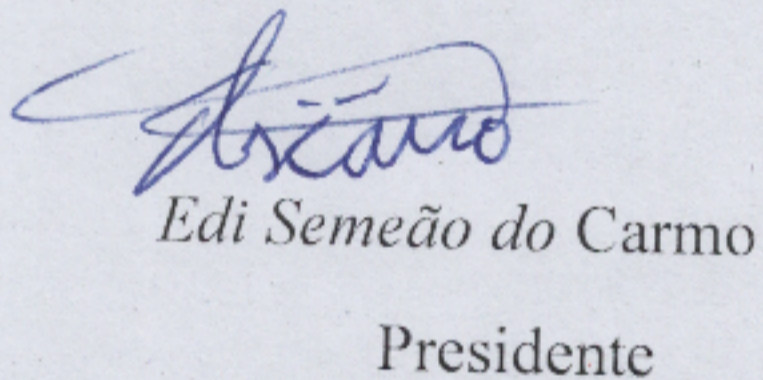 Edi Semeão do Carmo
Presidente